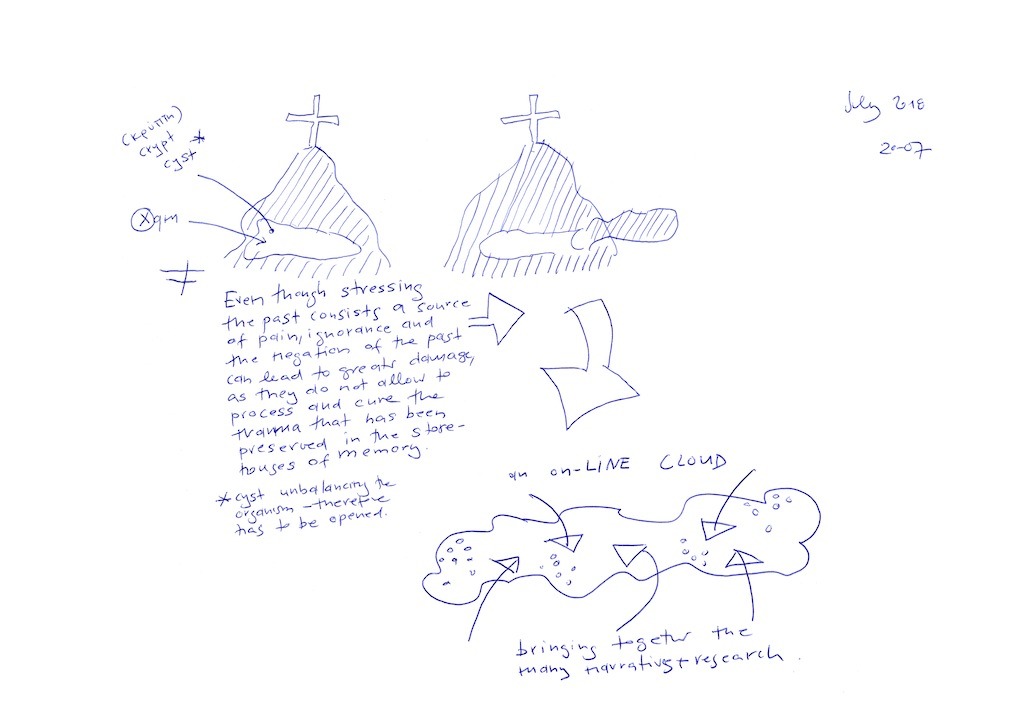 July 2018
20-07
(κρύπτη)
crypt
cyst *
Even though stressing
the past consists a source
of pain, ignorance and
the negation of the past
can lead to greater damage,
as they do not allow to
process and cure the
trauma that has been
preserved in the store-
houses of memory.
* cyst unbalancing the
organism - therefore
has to be opened.
an on-LINE CLOUD
bringing together the
many narratives + research.